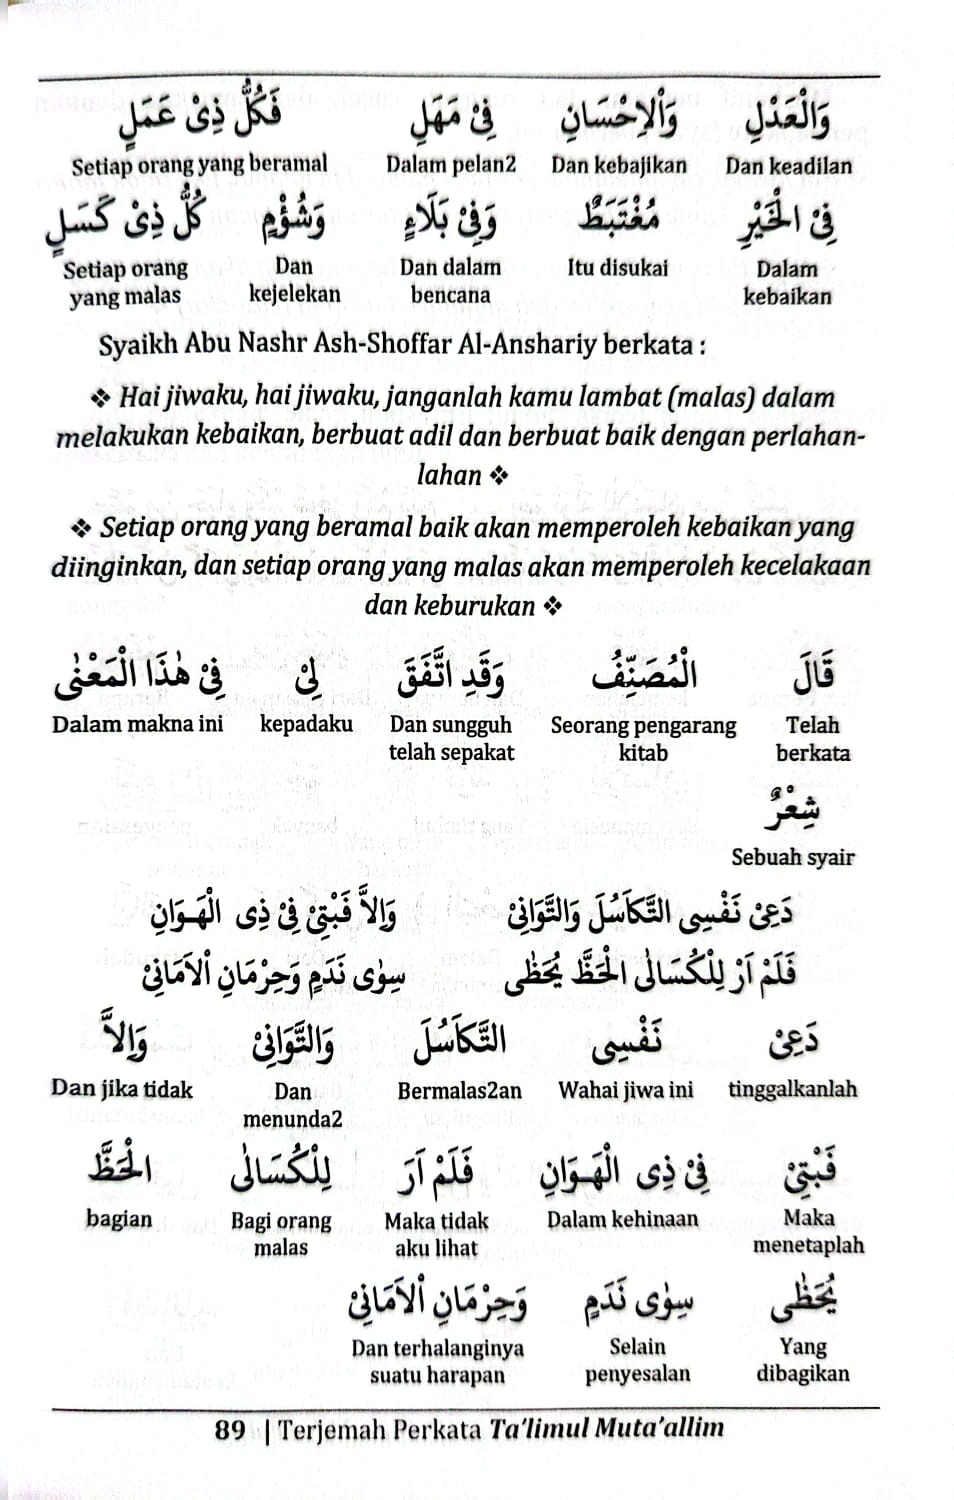 وَالْعَدْلِ وَالْاِحْسَانِ فِىْ مَهَلِ فَكُلُّ ذِىْ عَمَلٍ
Setiap orang yang beramal Dalam pelan2 Dan kebajikan Dan keadilan
فِىْ الْخَيْرِ مُغْتَبَطٌ وَفِىْ بَلَاءٍ وَشُؤْمٍ كُلُّ ذِىْ كَسَلٍ
Setiap orang Dan Dan dalam Itu disukai Dalam
yang malas kejelekan bencana kebaikan
Syaikh Abu Nashr Ash-Shoffar Al-Anshariy berkata :
❖ Hai jiwaku, hai jiwaku, janganlah kamu lambat (malas) dalam
melakukan kebaikan, berbuat adil dan berbuat baik dengan perlahan-
lahan ❖
❖ Setiap orang yang beramal baik akan memperoleh kebaikan yang
diinginkan, dan setiap orang yang malas akan memperoleh kecelakaan
dan keburukan ❖
قَالَ الْمُصَنِّفُ وَقَدِ اتَّفَقَ لِىْ فِىْ هٰذَا الْمَعْنٰى
Dalam makna ini kepadaku Dan sungguh Seorang pengarang Telah
telah sepakat kitab berkata
شِعْرٌ
Sebuah syair
دَعِىْ نَفْسِى التَّكَاسُلَ وَالتَّوَانِىْ وَاِلاَّ فَبْتِىْ فِىْ ذِى الْهَوَانِ
فَلَمْ اَرَ لِلْكُسَالٰى الْحَظَّ يُحَظٰى سِوٰى نَدَمٍ وَحِرْمَانِ اْلاَمَانِىْ
دَعِىْ نَفْسِى التَّكَاسُلَ وَالتَّوَانِىْ وَاِلاَّ
Dan jika tidak Dan Bermalas2an Wahai jiwa ini tinggalkanlah
menunda2
فَبْتِىْ فِىْ ذِى الْهَوَانِ فَلَمْ اَرَ لِلْكُسَالٰى الْحَظَّ
bagian Bagi orang Maka tidak Dalam kehinaan Maka
malas aku lihat menetaplah
يُحَظٰى سِوٰى نَدَمٍ وَحِرْمَانِ اْلاَمَانِىْ
Dan terhalanginya Selain Yang
suatu harapan penyesalan dibagikan
89 | Terjemah Perkata Ta'limul Muta'allim